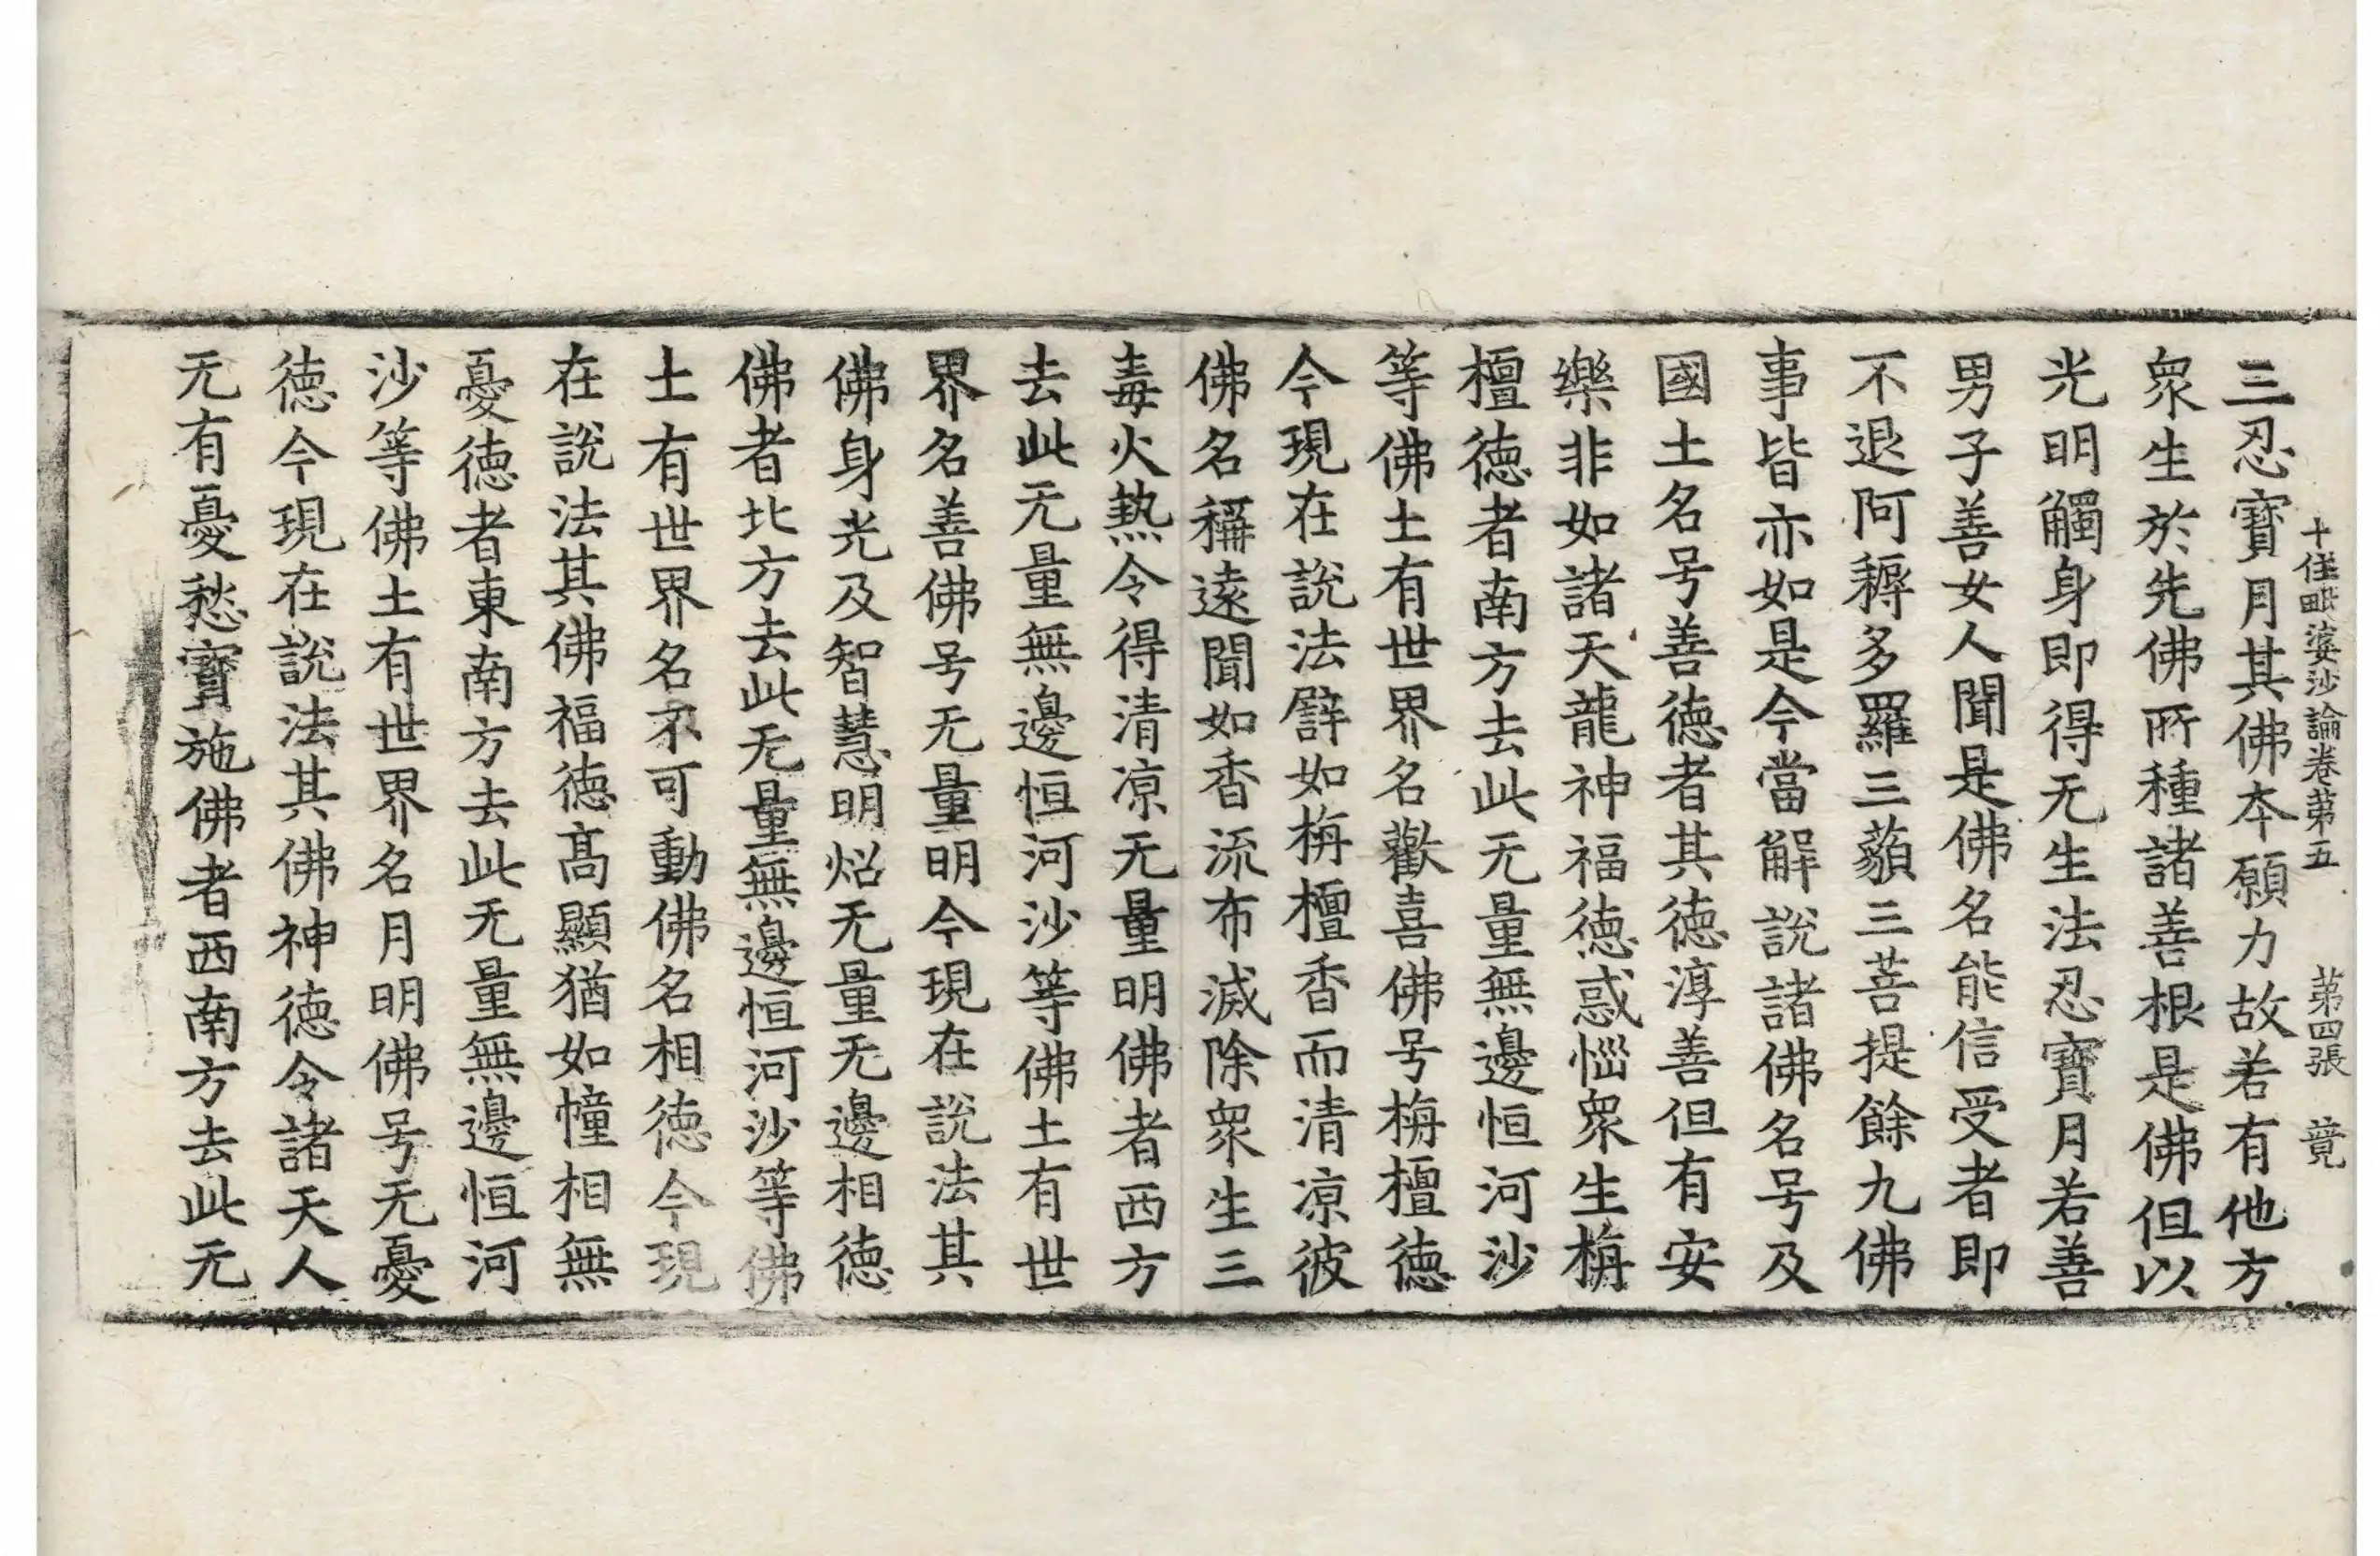 十住毗婆沙論卷苐五 苐四張 竟
三忍寶月其佛本願力故若有他方
衆生於先佛所種諸善根是佛但以
光明觸身即得无生法忍寶月若善
男子善女人聞是佛名能信受者即
不退阿耨多羅三藐三菩提餘九佛
事皆亦如是今當解說諸佛名号及
國土名号善德者其德淳善但有安
樂非如諸天龍神福德惑惱衆生栴
檀德者南方去此无量無邊恒河沙
等佛土有世界名歡喜佛号栴檀德
今現在說法譬如栴檀香而清凉彼
佛名稱遠聞如香流布滅除衆生三
毒火熱令得清凉无量明佛者西方
去此无量無邊恒河沙等佛土有世
界名善佛号无量明今現在說法其
佛身光及智慧明炤无量无邊相德
佛者北方去此无量無邊恒河沙等佛
土有世界名不可動佛名相德今現
在說法其佛福德髙顯猶如幢相無
憂德者東南方去此无量無邊恒河
沙等佛土有世界名月明佛号无憂
德今現在說法其佛神德令諸天人
无有憂愁寶施佛者西南方去此无